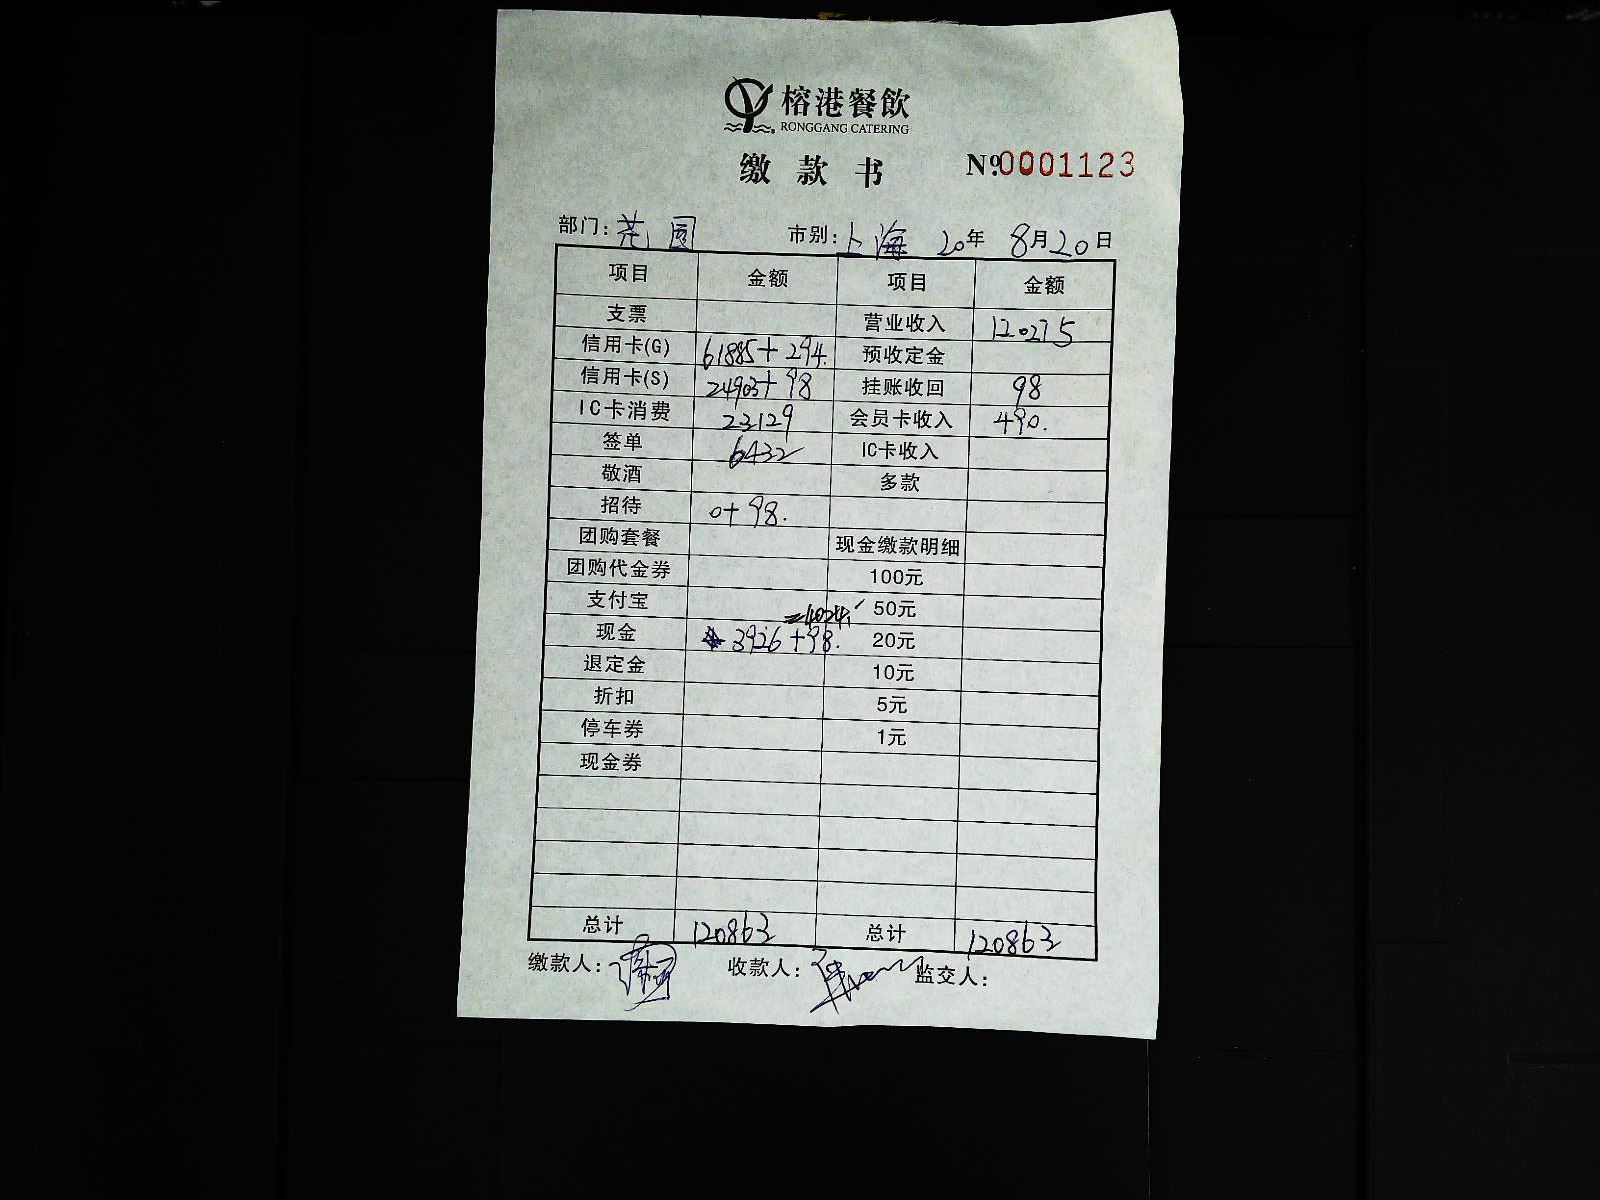 榕港餐飲
RONGGANG CATERING
缴款书 №0001123
部门: 花园 市别: 上海 20年 8月20日
项目 金额 项目 金额
支票 营业收入 120275
信用卡(G) 61885+294. 预收定金
信用卡(S) 24903+98 挂账收回 98
IC卡消费 23129 会员卡收入 490.
签单 6432 IC卡收入
敬酒 多款
招待 0+98.
团购套餐 现金缴款明细
团购代金券 100元
支付宝 =4024. 50元
现金 3926+98. 20元
退定金 10元
折扣 5元
停车券 1元
现金券
总计 120863 总计 120863
缴款人: 收款人: 监交人: